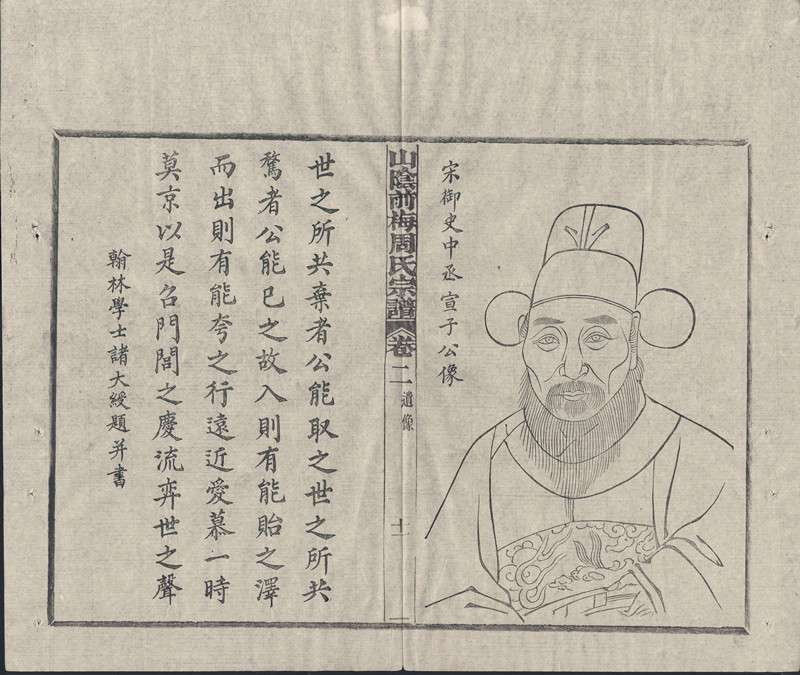 宋御史中丞宣子公像
山陰前梅周氏宗譜
卷二
遺像
十一
世之所共棄者公能取之世之所共
騖者公能已之故入則有能貽之澤
而出則有能夸之行遠近愛慕一時
莫京以是召門閭之慶流弈世之聲
翰林學士諸大綬題并書